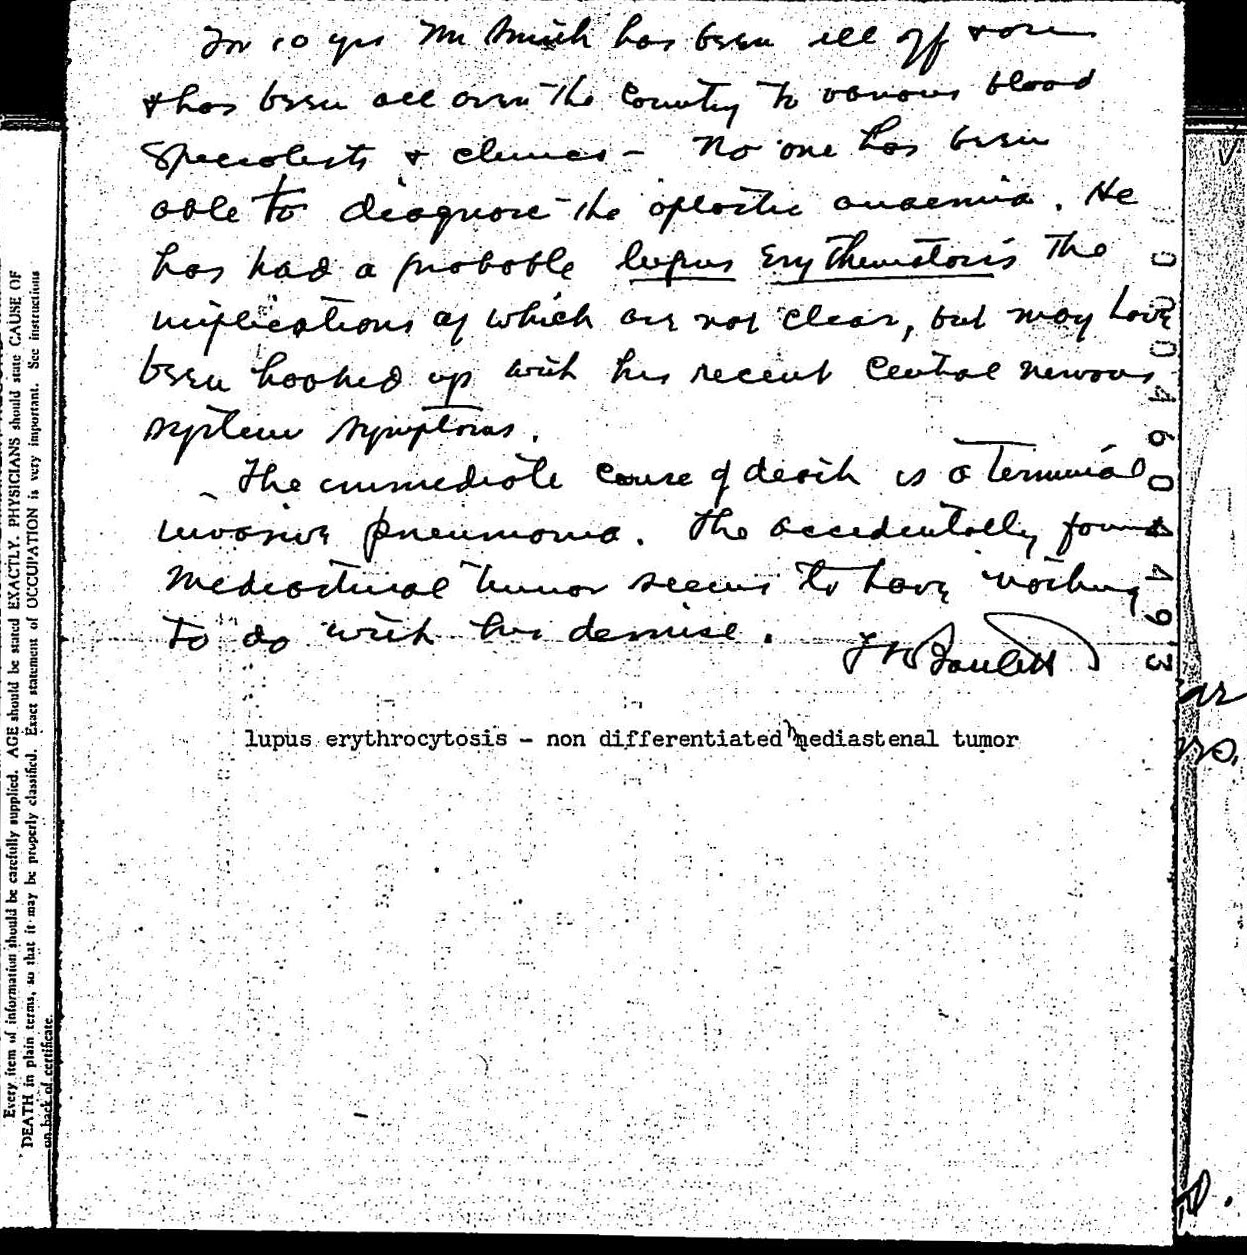 For 10 yrs Mr Smith has been ill off & on
& has been all over the Country to various blood
Specialists & clinics - No one has been
able to diagnose the aplastic anaemia. He
has had a probable lupus Erythematosis The
implications of which are not clear, but may have
been hooked up with his recent Central nervous
system symptoms.
The immediate cause of death is a Terminal
invasive pneumonia. The accidentally found
Mediastinal tumor seems to have nothing
to do with his demise.
lupus erythrocytosis - non differentiated mediastenal tumor
00004604493
Every item of information should be carefully supplied. AGE should be stated EXACTLY. PHYSICIANS should state CAUSE OF
DEATH in plain terms, so that it may be properly classified. Exact statement of OCCUPATION is very important. See instructions
on back of certificate.